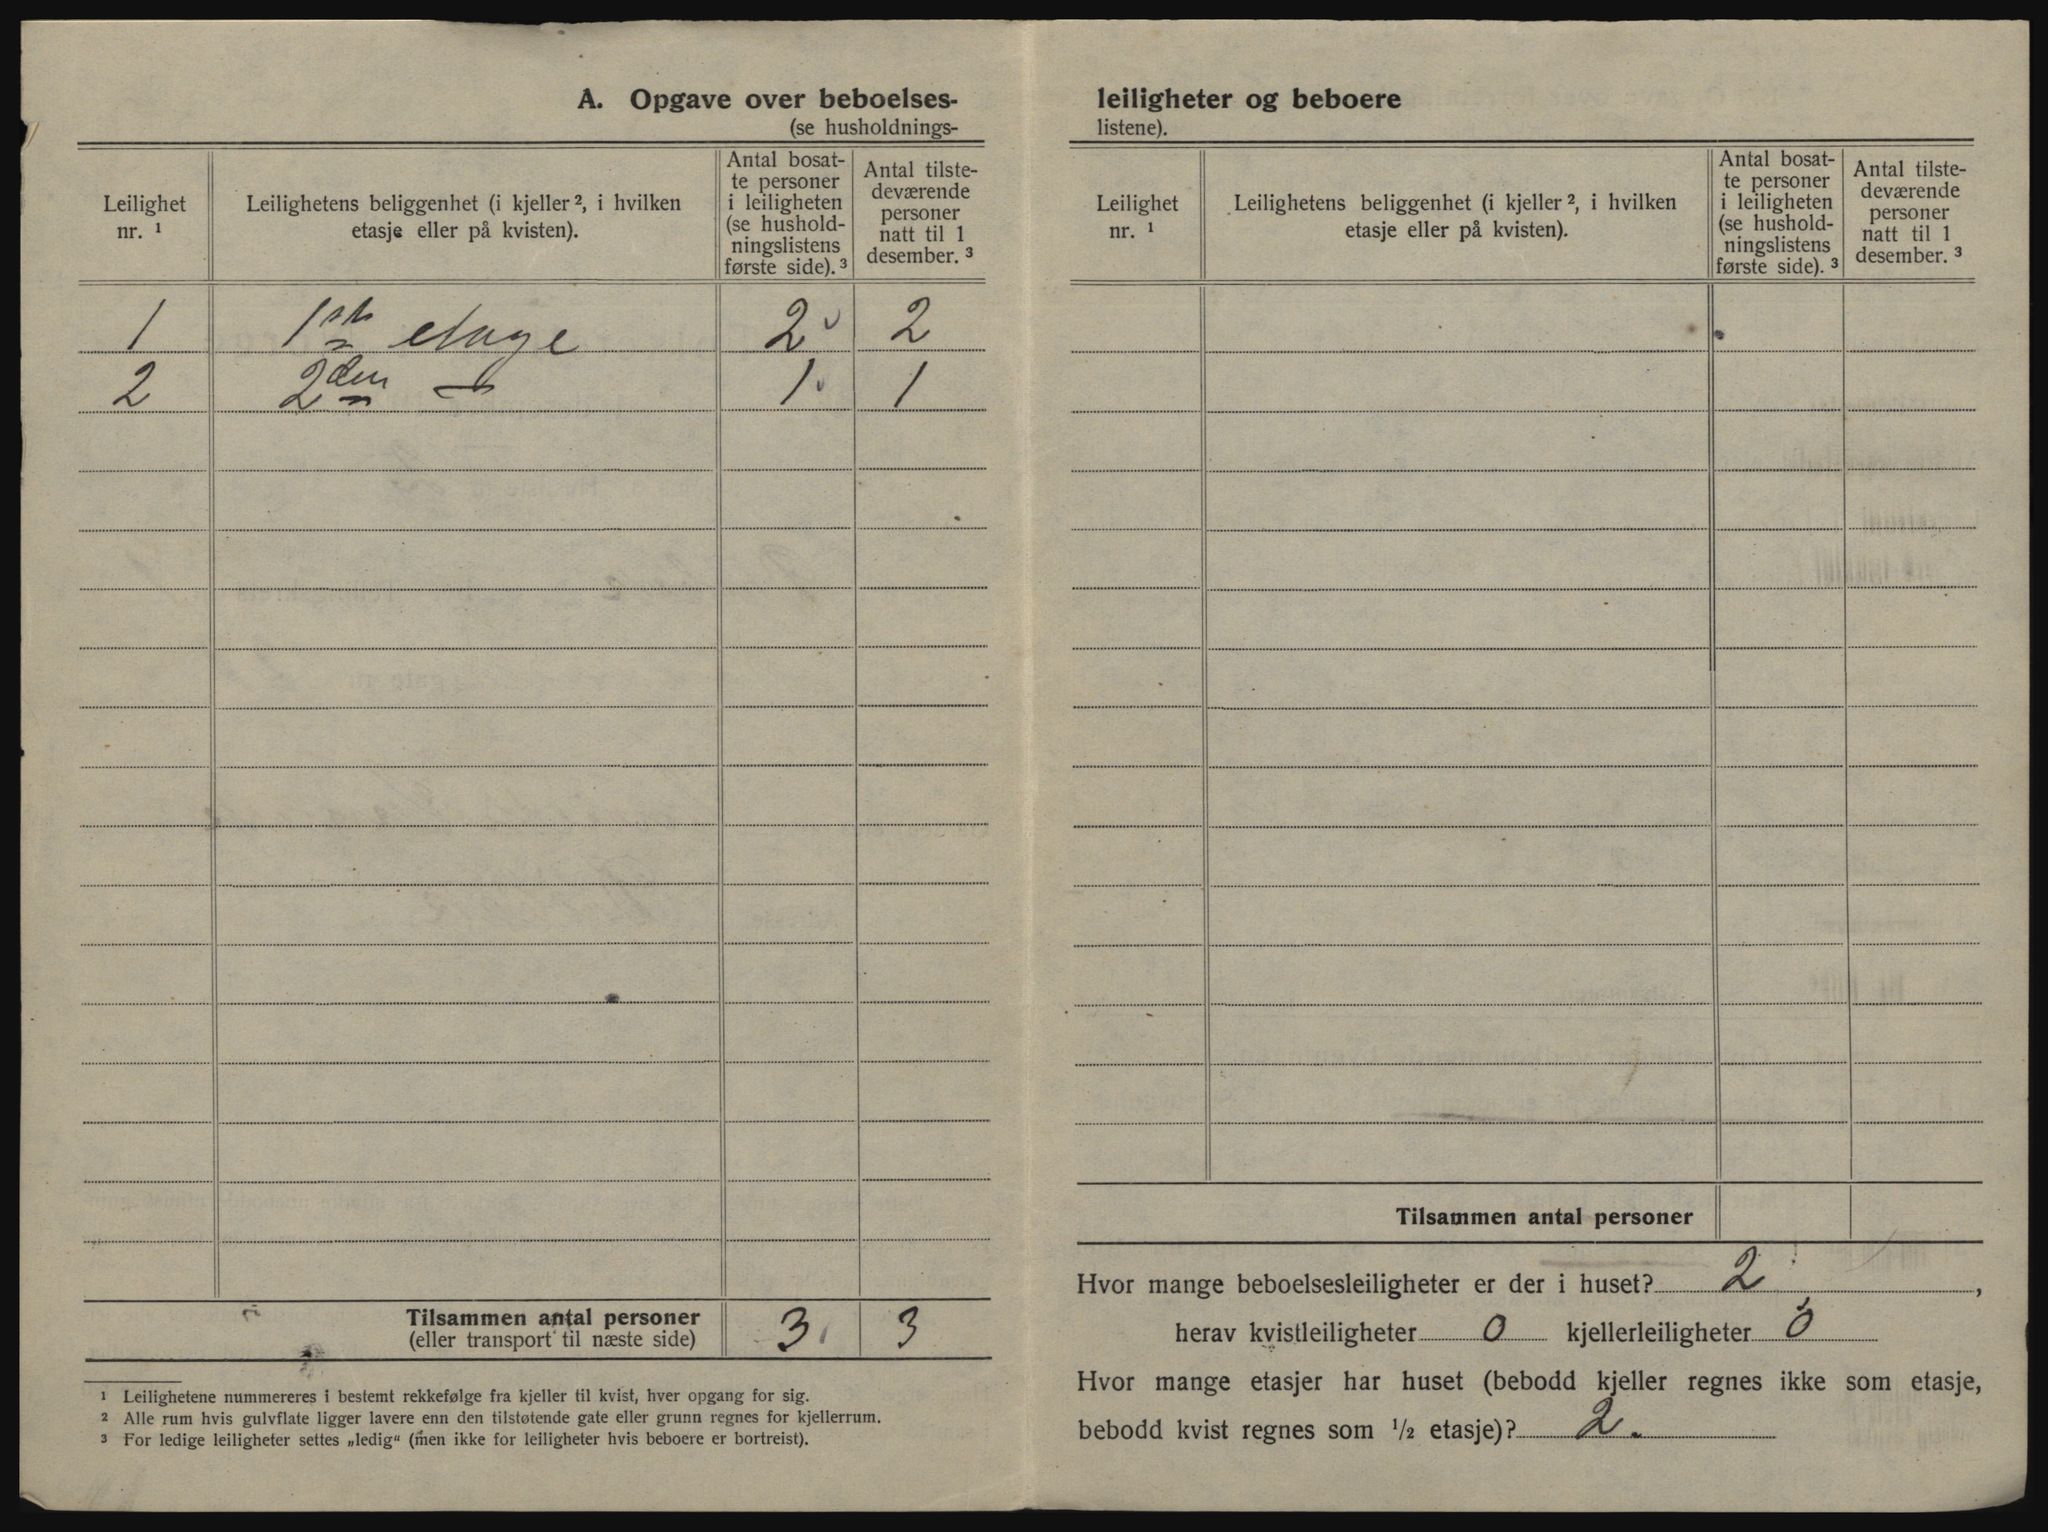 A. Opgave over beboelses-
(se husholdnings-
Leilighet nr. ¹
Leilighetens beliggenhet (i kjeller ², i hvilken
etasje eller på kvisten).
Antal bosat-
te personer
i leiligheten
(se hushold-
ningslistens
første side). ³
Antal tilste-
deværende
personer
natt til 1
desember. ³
1 1ste etage 2 2
2 2den — 1 1
Tilsammen antal personer 3 3
(eller transport til næste side)
¹ Leilighetene nummereres i bestemt rekkefølge fra kjeller til kvist, hver opgang for sig.
² Alle rum hvis gulvflate ligger lavere enn den tilstøtende gate eller grunn regnes for kjellerrum.
³ For ledige leiligheter settes „ledig“ (men ikke for leiligheter hvis beboere er bortreist).
leiligheter og beboere
listene).
Leilighet nr. ¹
Leilighetens beliggenhet (i kjeller ², i hvilken
etasje eller på kvisten).
Antal bosat-
te personer
i leiligheten
(se hushold-
ningslistens
første side). ³
Antal tilste-
deværende
personer
natt til 1
desember. ³
Tilsammen antal personer
Hvor mange beboelsesleiligheter er der i huset? 2,
herav kvistleiligheter 0 kjellerleiligheter 0
Hvor mange etasjer har huset (bebodd kjeller regnes ikke som etasje,
bebodd kvist regnes som ½ etasje)? 2.